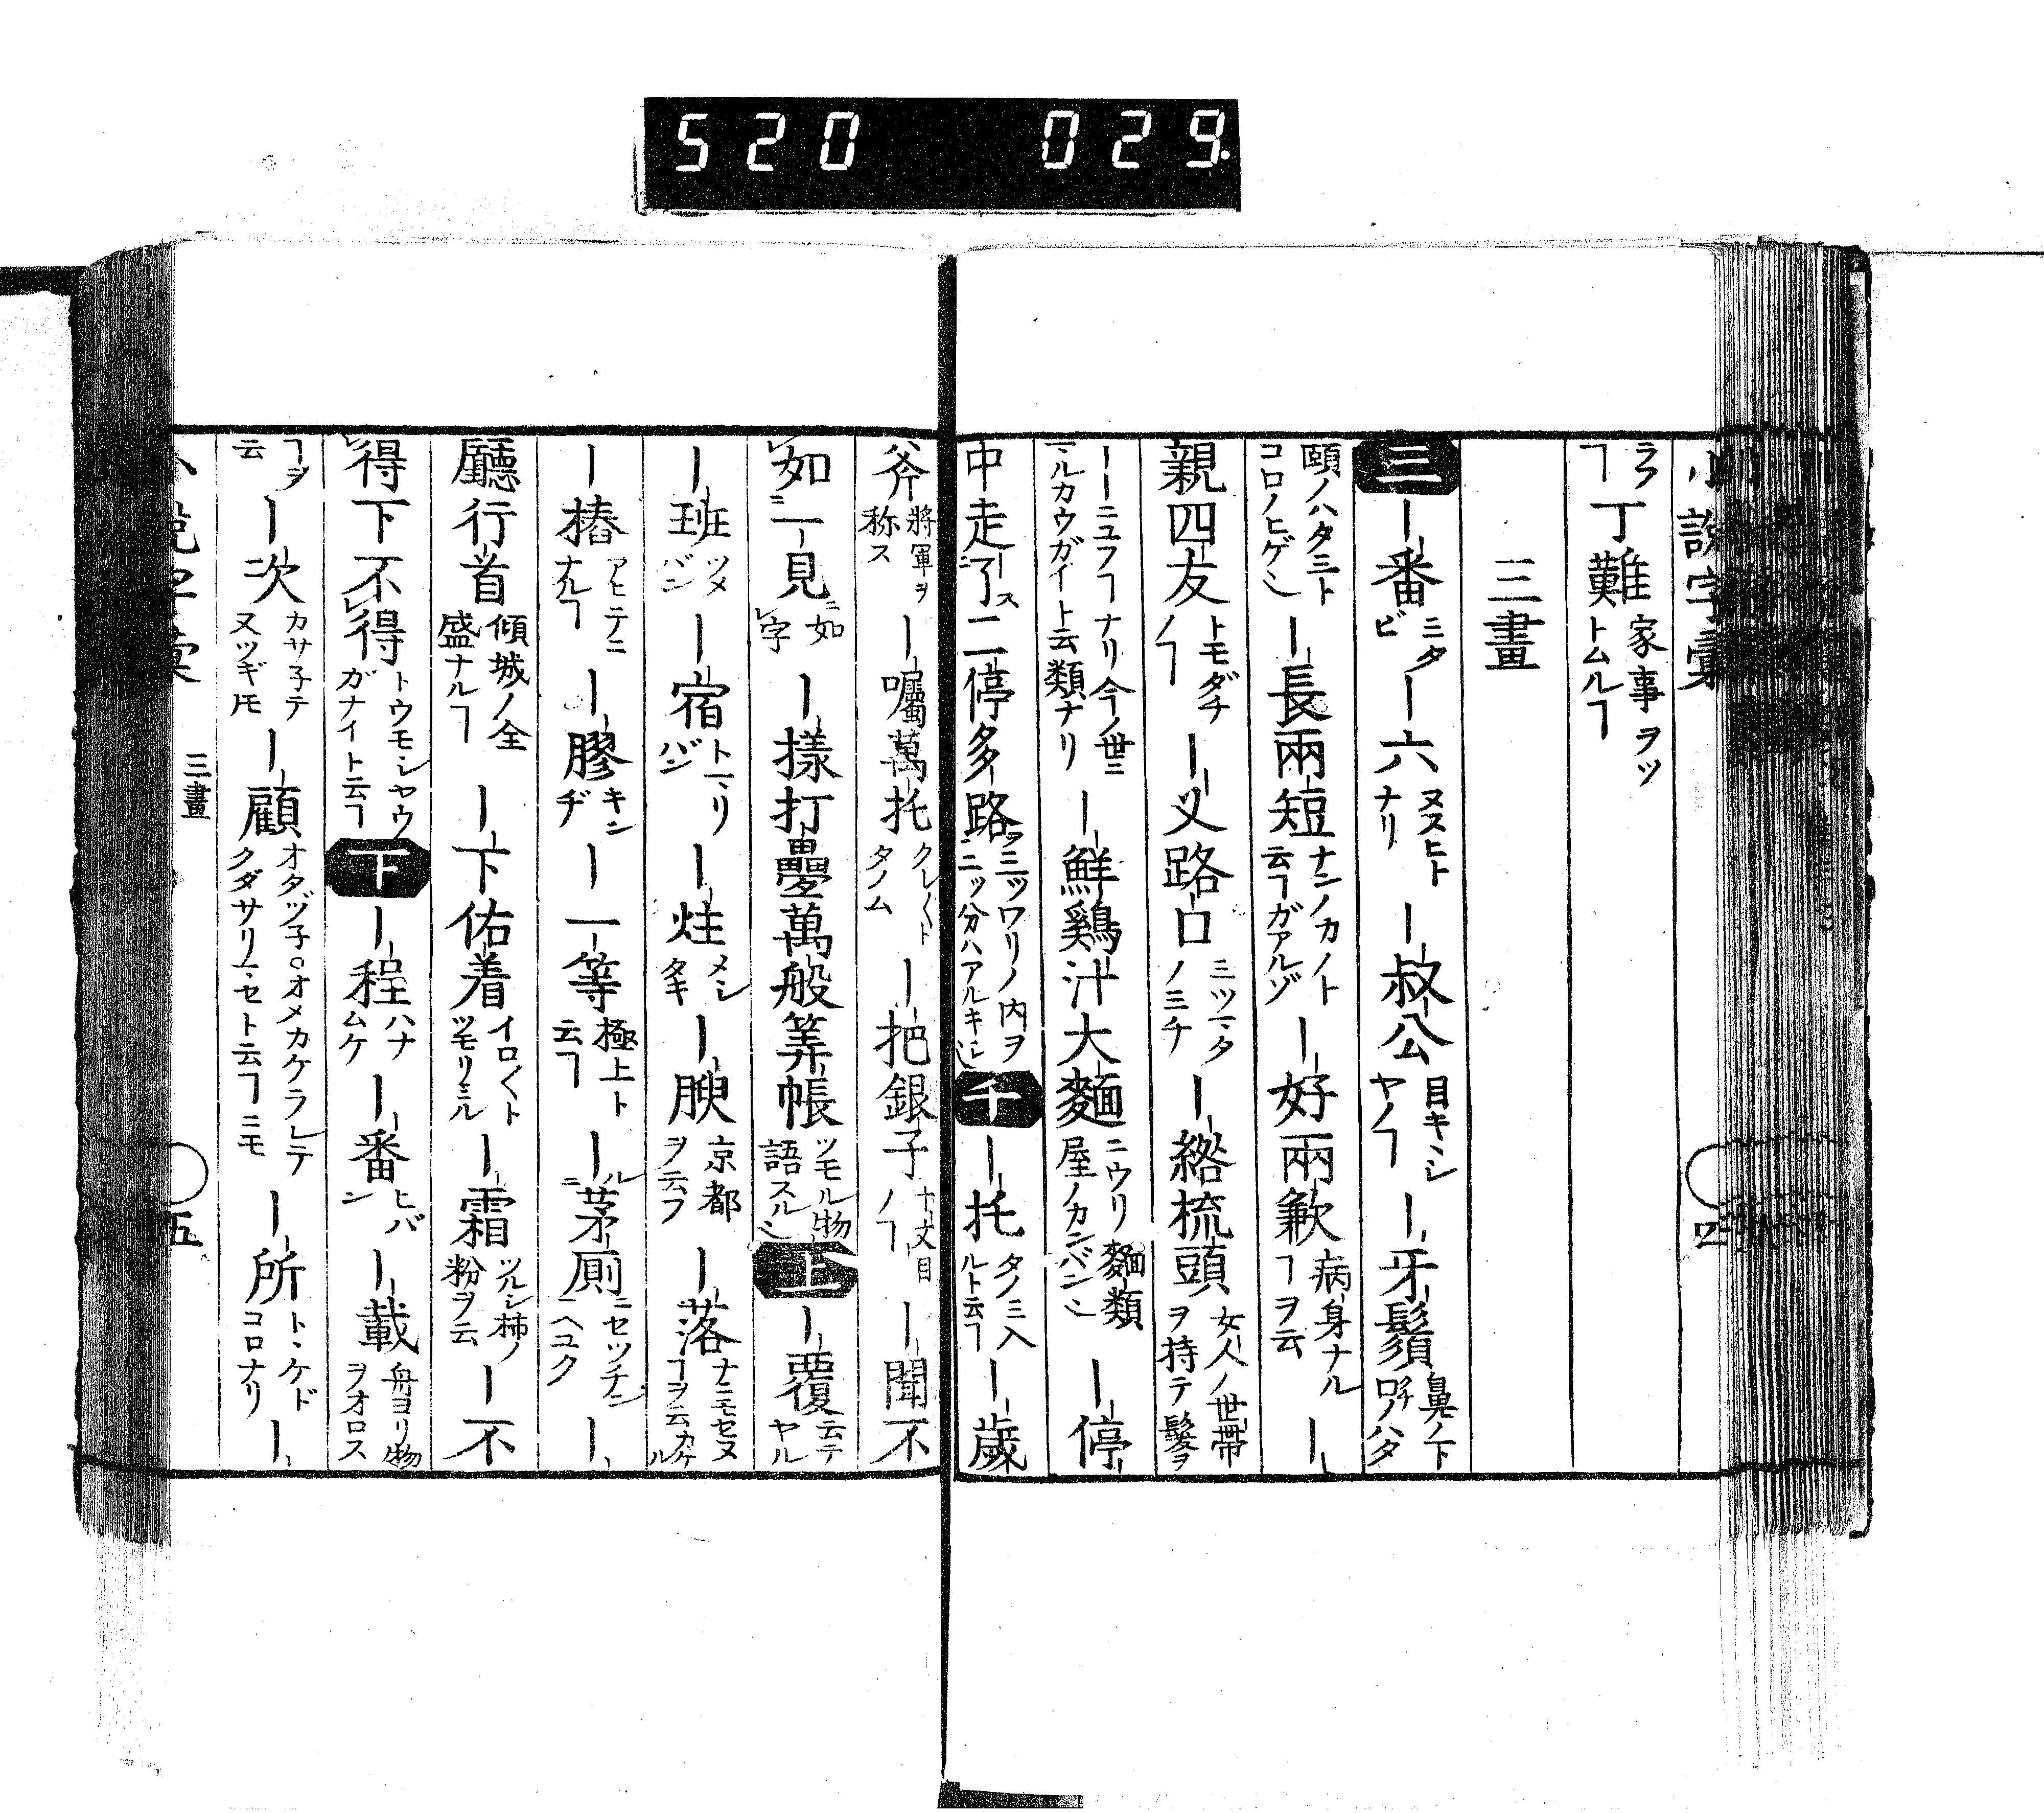 520 029.
小説字彙
四
ラフヿ 丁難 家事ヲツトムルヿ
三畫
三 ー番 ニタビ ー六 ヌスヒトナリ ー叔公 目キヽシヤノヿ ー牙鬚 鼻ノ下口ノハタ
頤ノハタ三トコロノヒゲ ー長兩短 ナンノカノト云ヿガアルゾ ー好兩歉 病身ナルヿヲ云 ー
親四友 トモダチノヿ ー义路口 三ツマタノミチ ー綹梳頭 女人ノ世帶ヲ持テ髮ヲ
ーーニユフヿナリ今ノ世ニマルカウガイト云類ナリ ー鮮鷄汁大麵 ニウリ麵類屋ノカンバン ー停
中走了二停多路 三ツワリノ内ヲニツ分ハアルキシ 千 ー托 タノミ入ルト云ヿ ー歲
斧 將軍ヲ称ス ー囑萬托 クレ〱トタノム ー把銀子 十文目ノヿ ー聞不
如一見 如字 ー樣打疊萬般筭帳 ツモル物語スル 上 ー覆 云テヤル
ー班 ツメバン ー宿 トマリバン ー炷 メシタキ ー腴 京都ヲ云フ ー落 ナニモセヌヿヲ云カケル
ー樁 ナルヿ ー膠 キンヂ ー一等 極上ト云ヿ ー茅厠 セツチンヘユク ー
廳行首 傾城ノ全盛ナルヿ ー下佑着 イロ〱トツモリミル ー霜 ツルシ柿ノ粉ヲ云 ー不
得下不得 トウモシヤウガナイト云ヿ 下 ー程 ハナムケ ー番 ヒバン ー載 舟ヨリ物ヲオロス
ヿヲ云 ー次 カサ子テ又ツギモ ー顧 オタヅ子○オメカケラレテクダサリマセト云ヿニモ ー所 トヽケドコロナリ ー
三畫
五